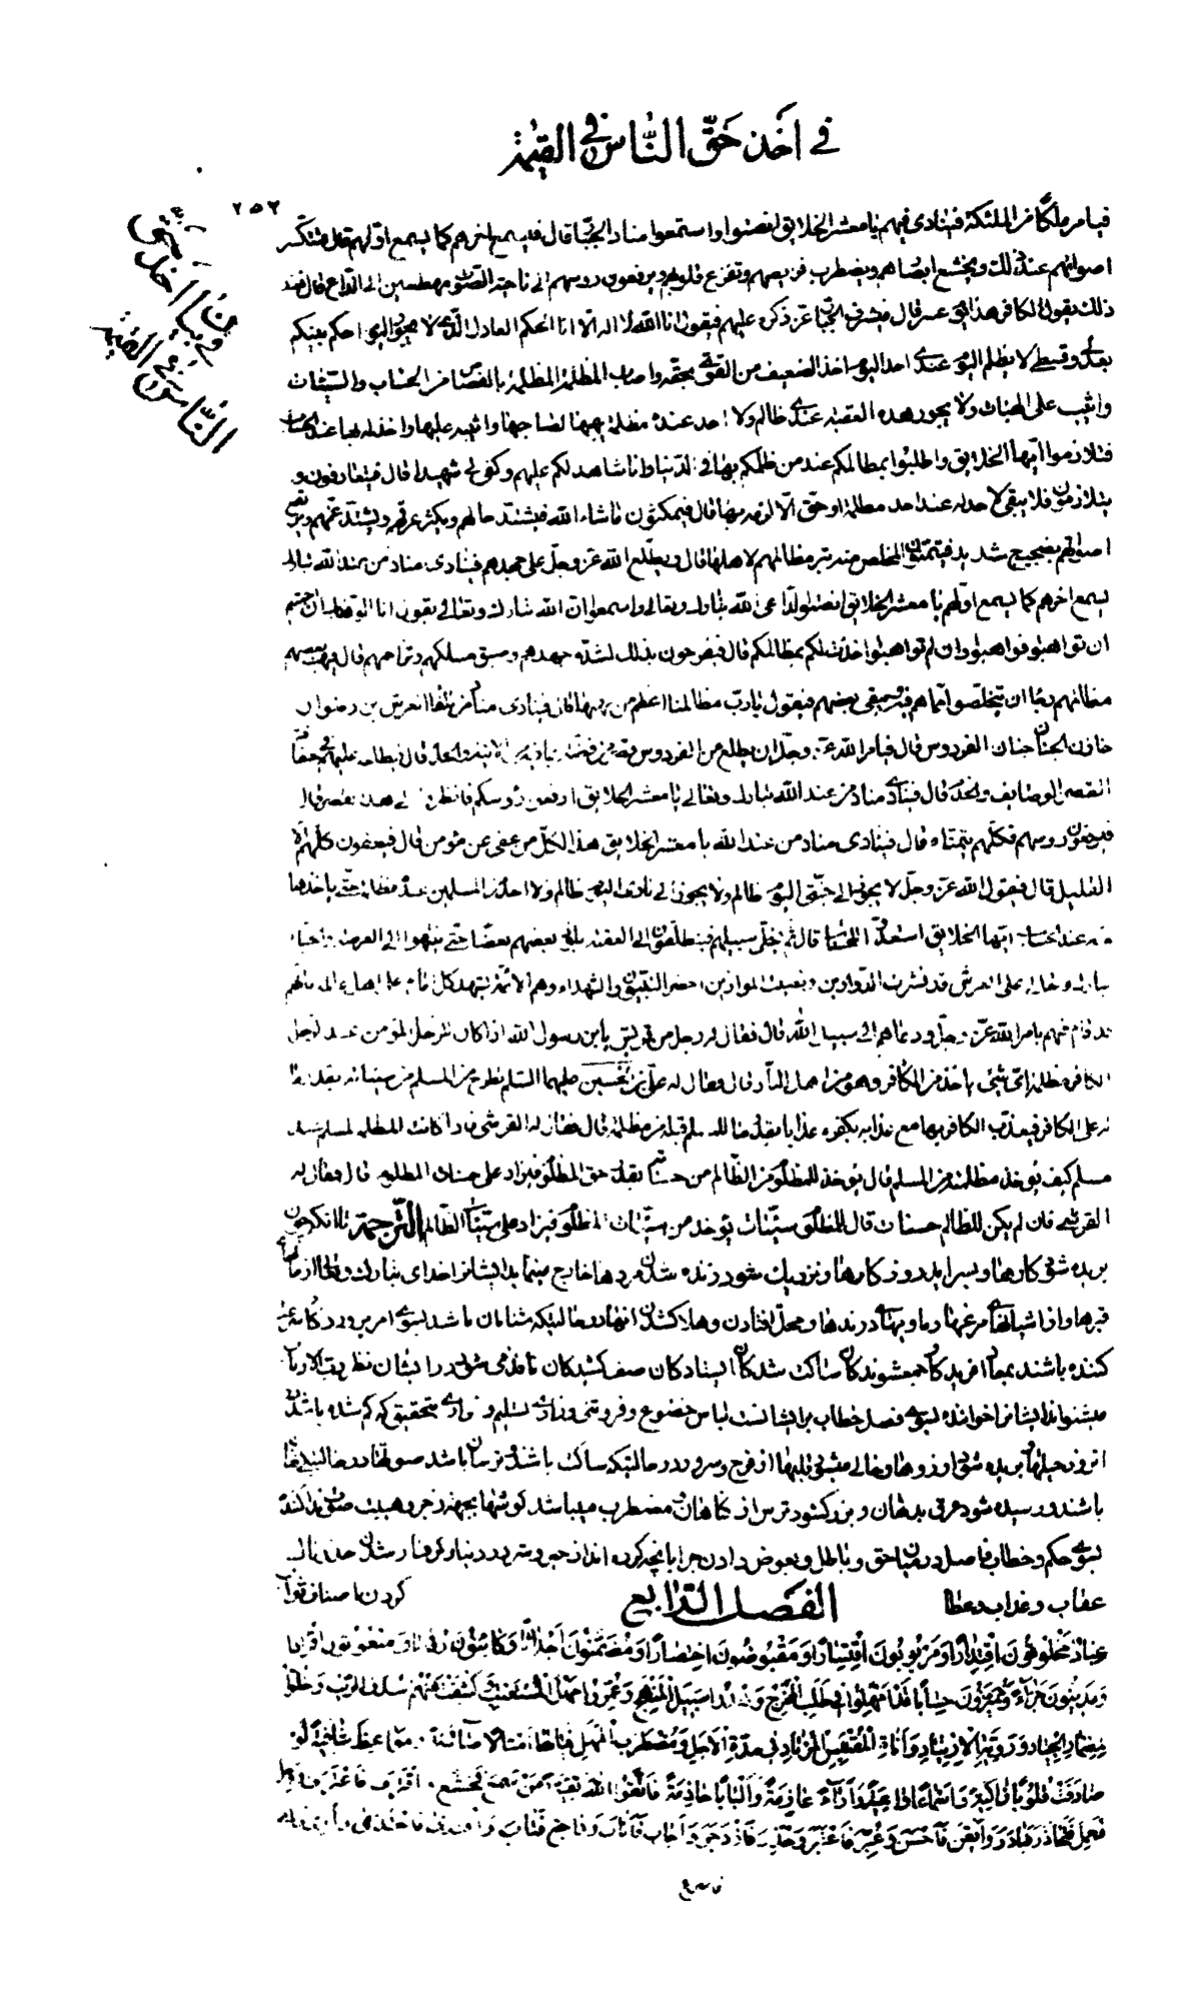 في اخذ حق الناس في القيمة
٢٥٢
في بيان اخذ حق
الناس في القيمة
فيامر ملكا من الملئكة فينادى فيهم يا معشر الخلايق انصتوا واستمعوا منادى الجبار قال فيسمع اخرهم كما يسمع اولهم قال فتنكسر
اصواتهم عند ذلك ويخشع ابصارهم ويضطرب فرايصهم وتفزع قلوبهم ويرفعون رؤسهم الى ناحية الصوت مهطعين الى الداع قال فعند
ذلك يقول الكافر هذا يوم عسر قال فيشرف الجبار عز ذكره عليهم فيقول انا الله لا اله الا انا الحكم العادل الذى لا يجور اليوم احكم بينكم
بعدلى وقسطى لا يظلم اليوم عندى احد اليوم اخذ الضعيف من القوى بحقه ولصاحب المظلمة المظلمة بالقصاص من الحسنات والسيئات
واثيب على الهبات ولا يجوز هذه العقبة عندى ظالم ولا احد عنده مظلمة يهبها لصاحبها واثيبه عليها واخذ له بها عند الحساب
فتلازموا ايها الخلايق واطلبوا مظالمكم عند من ظلمكم بها فى الدنيا وانا شاهد لكم عليهم وكفى بى شهيدا قال فيتعارفون و
يتلازمون فلا يبقى لاحد له عند احد مظلمة او حق الا لزمه بها قال فيمكثون ما شاء الله فيشتد حالهم ويكثر عرقهم ويشتد غمهم ويرتفع
اصواتهم بضجيج شديد فيتمنون المخلص منه بترك مظالمهم لاهلها قال ويطلع الله عز وجل على جهدهم فينادى مناد من عند الله تبارك
يسمع اخرهم كما يسمع اولهم يا معشر الخلايق انصتوا لداعى الله تبارك وتعالى واسمعوا ان الله تبارك وتعالى يقول انا الوهاب ان احببتم
ان تواهبوا فتواهبوا وان لم تواهبوا اخذت لكم بمظالمكم قال فيفرحون بذلك لشدة جهدهم وضيق مسلكهم وتزاحمهم قال فيهب بعضهم
مظالمهم رجاء ان يتخلصوا مما هم فيه ويبقى بعضهم فيقول يا رب مظالمنا اعظم من ان نهبها قال فينادى مناد من تلقاء العرش اين رضوان
خازن الجنان جنان الفردوس قال فيامر الله عز وجل ان يطلع من الفردوس قصرا من فضة بما فيه من الابنية والخدم قال فيطلعه عليهم فى حفافة
القصر الوصايف والخدم قال فينادى مناد من عند الله تبارك وتعالى يا معشر الخلايق ارفعوا رؤسكم فانظروا الى هذا القصر قال
فيرفعون رؤسهم فكلهم يتمناه قال فينادى مناد من عند الله يا معشر الخلايق هذا لكل من عفى عن مؤمن قال فيعفون كلهم الا
القليل قال فيقول الله عز وجل لا يجوز الى جنتى اليوم ظالم ولا يجوز الى نارى اليوم ظالم ولا احد من المسلمين عنده مظلمة حتى ياخذها
منه عند الحساب ايها الخلايق استعدوا للحساب قال ثم يخلى سبيلهم فينطلقون الى العقبة يكرد بعضهم بعضا حتى ينتهوا الى العرصة والجبار
تبارك وتعالى على العرش قد نشرت الدواوين ونصبت الموازين واحضر النبيون والشهداء وهم الائمة يشهد كل امام على اهل عالمه بانهم
قد قام فيهم بامر الله عز وجل ودعاهم الى سبيل الله قال فقال له رجل من قريش يابن رسول الله اذا كان للرجل المؤمن عند الرجل
الكافر مظلمة اى شئ ياخذ من الكافر وهو من اهل النار قال فقال له على بن الحسين عليهما السلم يطرح من المسلم من سيئاته بقدر ما
له على الكافر فيعذب الكافر بها مع عذابه بكفره عذابا بقدر ما للمسلم قبله من مظلمة قال فقال له القرشى فاذا كانت المظلمة لمسلم عند
مسلم كيف يؤخذ مظلمته من المسلم قال يؤخذ للمظلوم من الظالم من حسناته بقدر حق المظلوم فيزاد على حسنات المظلوم قال فقال له
القرشى فان لم يكن للظالم حسنات قال للمظلوم سيئات يؤخذ من سيئات المظلوم فيزاد على سيئات الظالم الترجمة تا انكه چون
بريده شود كارها وبسرايد روزكارها ونزديك شود زنده شدن مردها خارج مينمايد ايشانرا خداى تبارك وتعالى از ميان
قبرها واز اشيانهاى مرغها وماويهاى درندها ومحل افتادن وهلاك شدن انها در حالتيكه شتابان باشند بسوى امر پروردكار
كننده باشند بمعاد افريدكار جمع شوندكان ساكت شدكان ايستادكان صف كشيدكان نافذ مى شود در ايشان نظر پروردكار
ميشنواند ايشانرا خواننده بسوى فصل خطاب بر ايشانست لباس خضوع وفروتنى وزارى تسليم و خوارى بتحقيق كه كم شده باشد
انروز حيلها وبريده شود ارزوها وخالى ميشود قلبها از فرح وسرور در حالتيكه ساكت باشند وترسان باشد صوتها در حالتيكه پنهان
باشند ورسيده شود عرق بدهان وبزرك شود ترس از كناهان مضطرب ميباشد كوشها بجهة زجر وهيبت صوت ندا كننده
بسوى حكم وخطاب فاصل درميان حق وباطل وبعوض دادن جزا بانچه كرده اند از خير وشر در دنيا وكرفتار شدن
عقاب وعذاب وعطا كردن باصناف ثواب
الفصل الرابع
عباد مخلوقون اقتدارا ومربوبون اقتسارا ومقبوضون احتضارا ومضمنون اجداثا وكائنون رفاتا ومبعوثون افرادا
ومدينون جزاء ومميزون حسابا قد امهلوا فى طلب المخرج وهدوا سبيل المنهج وعمروا مهل المستعتب وكشفت عنهم سدف الريب وخلوا
لمضمار الجياد وروية الارتياد واناة المقتبس المرتاد فى مدة الاجل ومضطرب المهل فيالها امثالا صائبة ومواعظ شافية لو
صادفت قلوبا زاكية واسماعا واعية واراء عازمة والبابا حازمة فاتقوا الله تقية من سمع فخشع واقترف فاعترف ووجل
فعمل وحاذر فبادر وايقن فاحسن وعبر فاعتبر وحذر فازدجر واجاب فاناب وراجع فتاب واقتدى فاحتذى وارى فراى